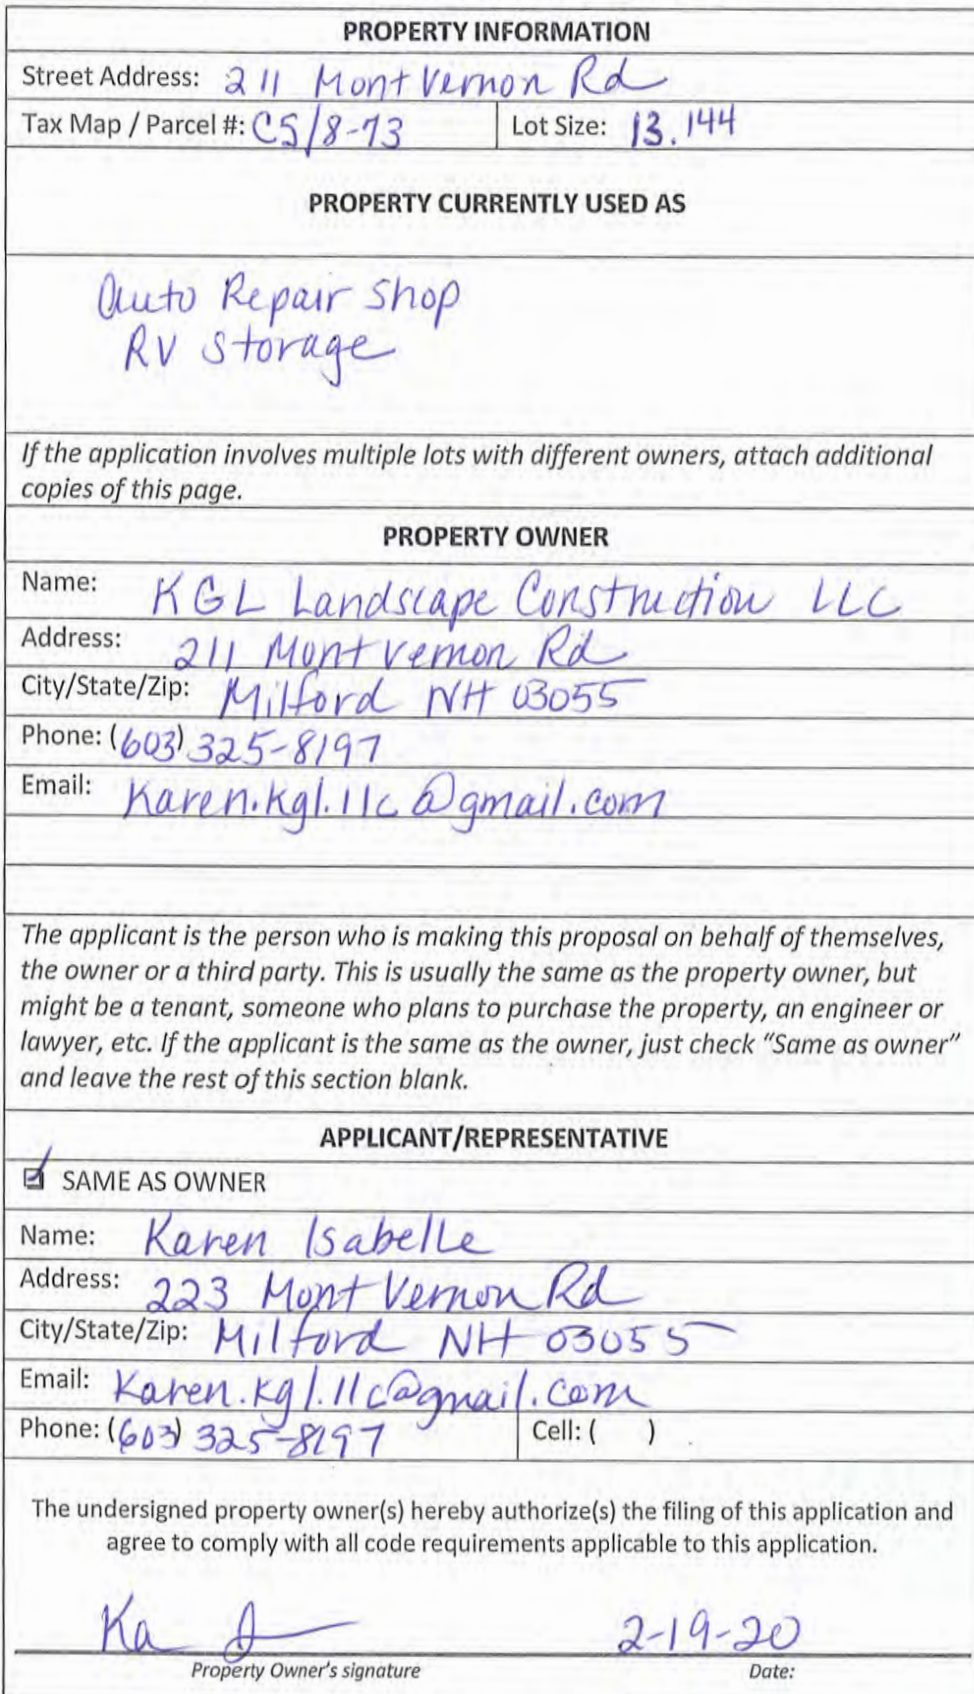 PROPERTY INFORMATION
Street Address: 211 Mont Vernon Rd
Tax Map / Parcel #: C5/8-73 Lot Size: 13.144
PROPERTY CURRENTLY USED AS
Auto Repair Shop
RV Storage
If the application involves multiple lots with different owners, attach additional
copies of this page.
PROPERTY OWNER
Name: KGL Landscape Construction LLC
Address: 211 Mont Vernon Rd
City/State/Zip: Milford NH 03055
Phone: (603) 325-8197
Email: Karen.kgl.llc@gmail.com
The applicant is the person who is making this proposal on behalf of themselves,
the owner or a third party. This is usually the same as the property owner, but
might be a tenant, someone who plans to purchase the property, an engineer or
lawyer, etc. If the applicant is the same as the owner, just check “Same as owner”
and leave the rest of this section blank.
APPLICANT/REPRESENTATIVE
☑ SAME AS OWNER
Name: Karen Isabelle
Address: 223 Mont Vernon Rd
City/State/Zip: Milford NH 03055
Email: Karen.kgl.llc@gmail.com
Phone: (603) 325-8197 Cell: ( )
The undersigned property owner(s) hereby authorize(s) the filing of this application and
agree to comply with all code requirements applicable to this application.
2-19-20
Property Owner's signature Date: